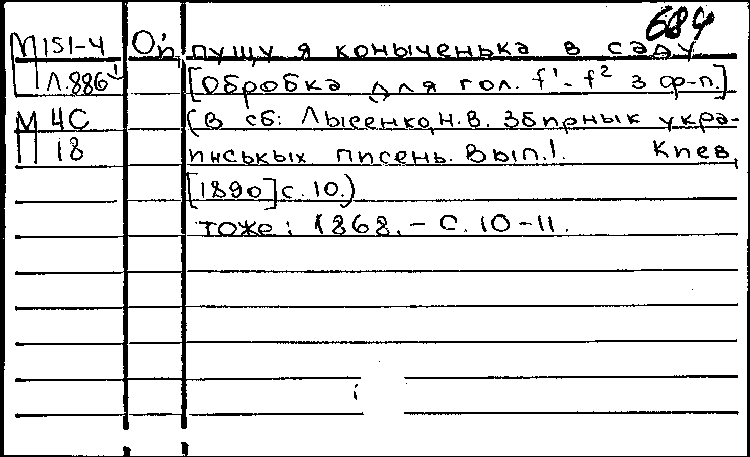 684
М151-4 Ой, пущу я коныченька в саду
П Л.886¹ [Обробка для гол. f¹-f² з ф-п.]
М 4С (В сб: Лысенко, Н.В. Збирнык укра-
П 18 инськых писень. Вып.1. Киев,
[1890] с. 10.)
тоже: 1868. – С. 10-11.